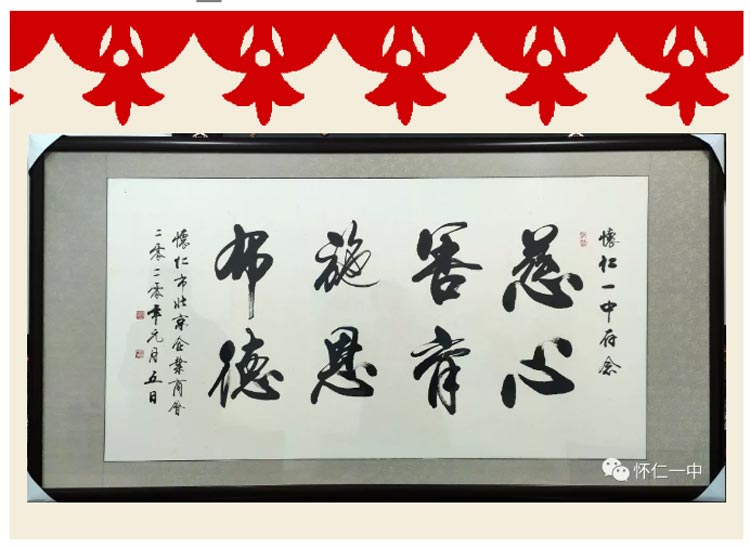 懷仁一中存念
慈心
善育
施恩
布德
懷仁市北京企業商會
二零二零年元月五日
怀仁一中